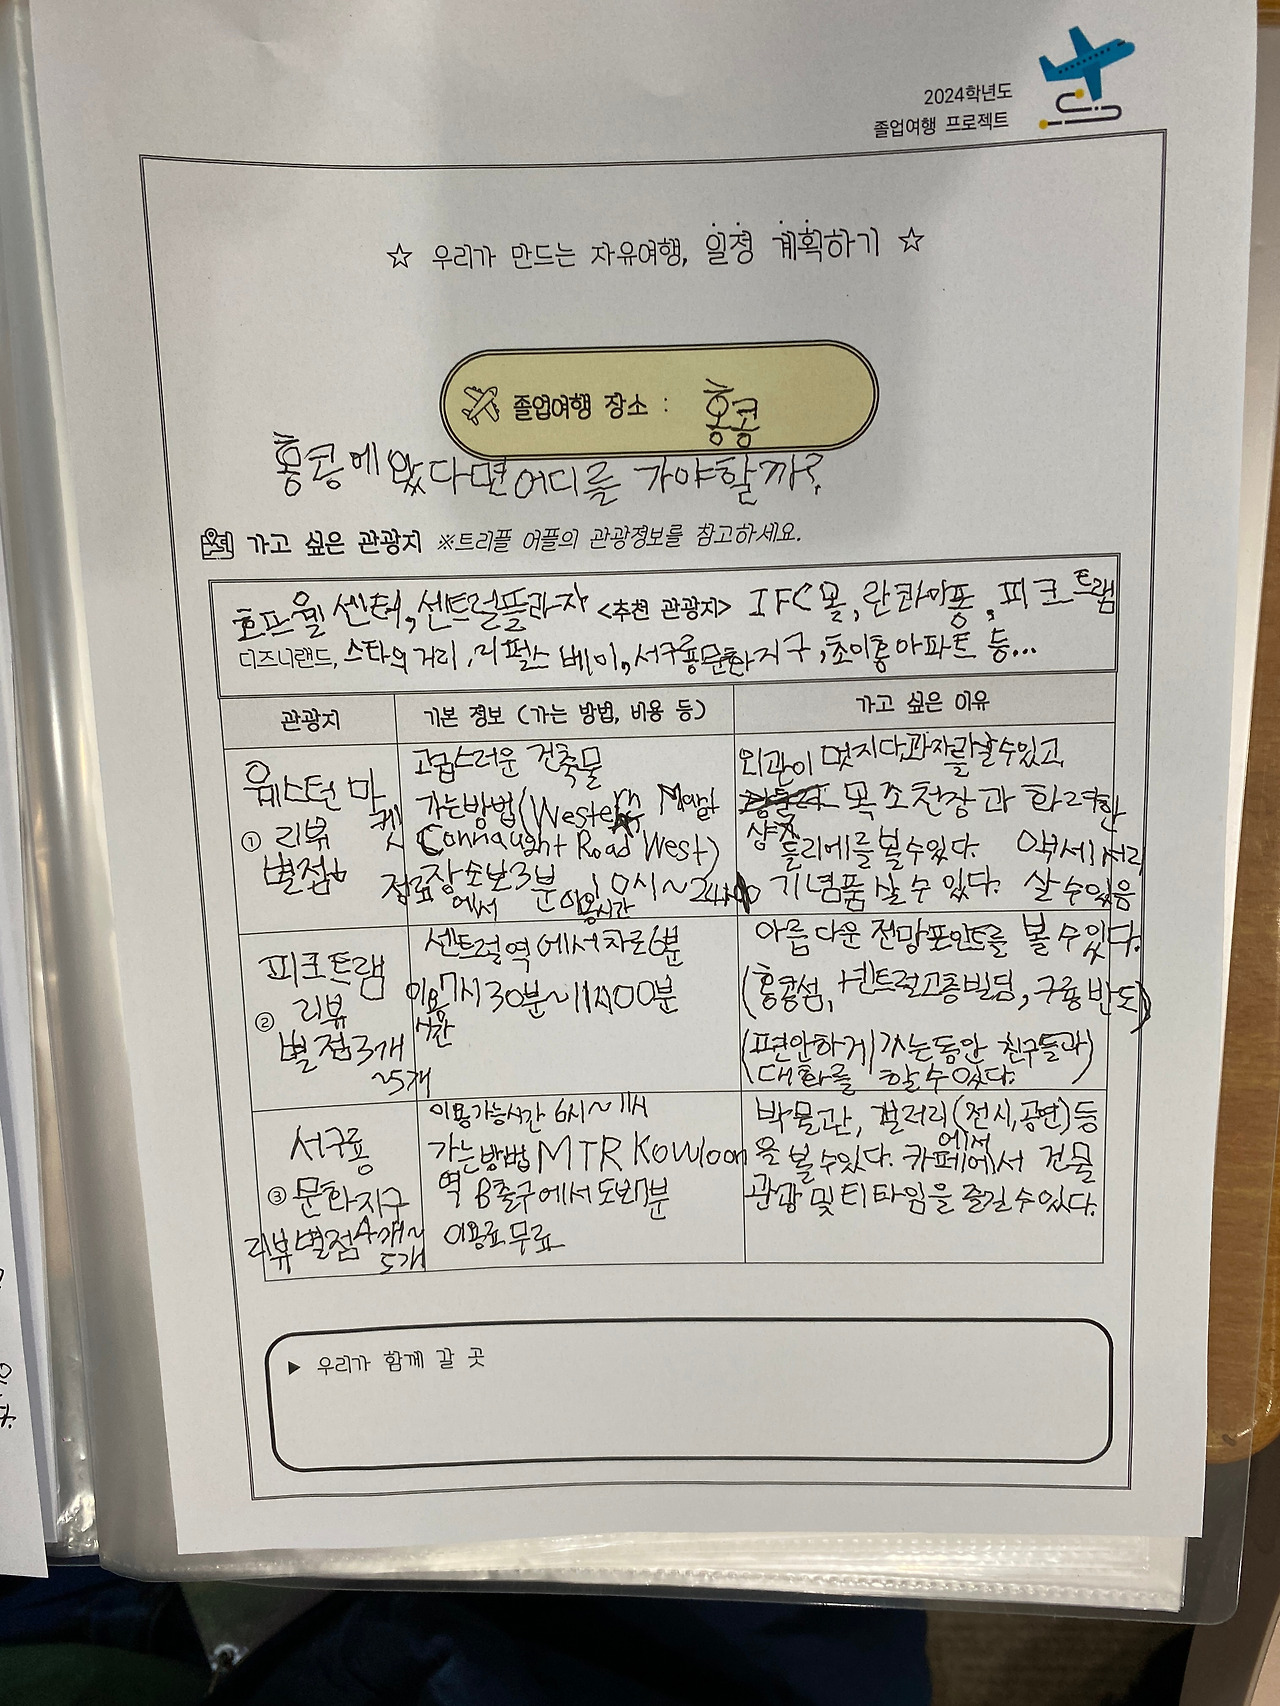 2024학년도
졸업여행 프로젝트
☆ 우리가 만드는 자유여행, 일정 계획하기 ☆
졸업여행 장소 : 홍콩
홍콩에 왔다면 어디를 가야할까?
가고 싶은 관광지 ※트리플 어플의 관광정보를 참고하세요.
호프웰 센터, 센트럴플라자 <추천 관광지> IFC몰, 란콰이퐁, 피크트램
디즈니랜드, 스타의 거리, 리펄스 베이, 서구룡문화지구, 초이홍아파트 등...
관광지
기본 정보 (가는 방법, 비용 등)
가고 싶은 이유
①
웨스턴 마
켓
리뷰
별점
고급스러운 건축물
가는방법(Western
Connaught Road West)
정료장소보3분
에서
이용시간
10시~24시
외관이 멋지다,과자를살수있고,
목조천장과 화려한
샹즈
들리에를 볼수있다.
기념품 살 수 있다. 살 수 있음
②
피크트램
리뷰
별점3개
~5개
센트럴역에서차로6분
이용
시간
7시30분~11시00분
아름다운 전망포인트를 볼 수 있다.
(홍콩섬, 센트럴고층빌딩, 구룡반도)
(편안하게 가는동안 친구들과)
대화를 할 수 있다.
③
서구룡
문화지구
리뷰별점4개~
5개
이용가능시간 6시~11시
가는방법 MTR Kowloon
역 B출구에서 도보7분
이용료 무료
박물관, 갤러리(전시,공연)등
을 볼 수있다. 카페에서 건물
에서
관광 및 티타임을 즐길 수 있다.
▶ 우리가 함께 갈 곳